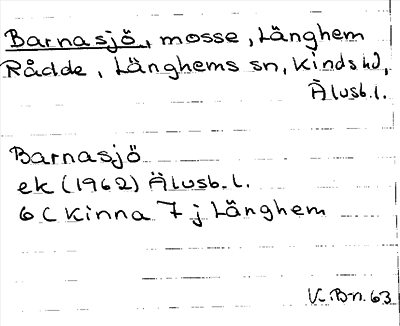 Barnasjö, mosse, Länghem
Rådde, Länghems sn, Kinds hd,
Älvsb. l.
Barnasjö
ek (1962) Älvsb. l.
6 C Kinna 7 j Länghem
K. Bn. 63